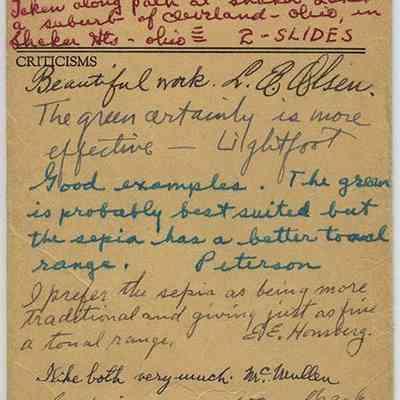 Taken along path at Shaker Lakes
a suburb of Cleveland - Ohio, in
Shaker Hts - Ohio 2-SLIDES
CRITICISMS
Beautiful work. L. E. Olsen.
The green certainly is more
effective — Lightfoot
Good examples. The green
is probably best suited but
the sepia has a better tonal
range. Peterson
I prefer the sepia as being more
traditional and giving just as fine
a tonal range. E.E. Honsberg.
I like both very much. McMullen